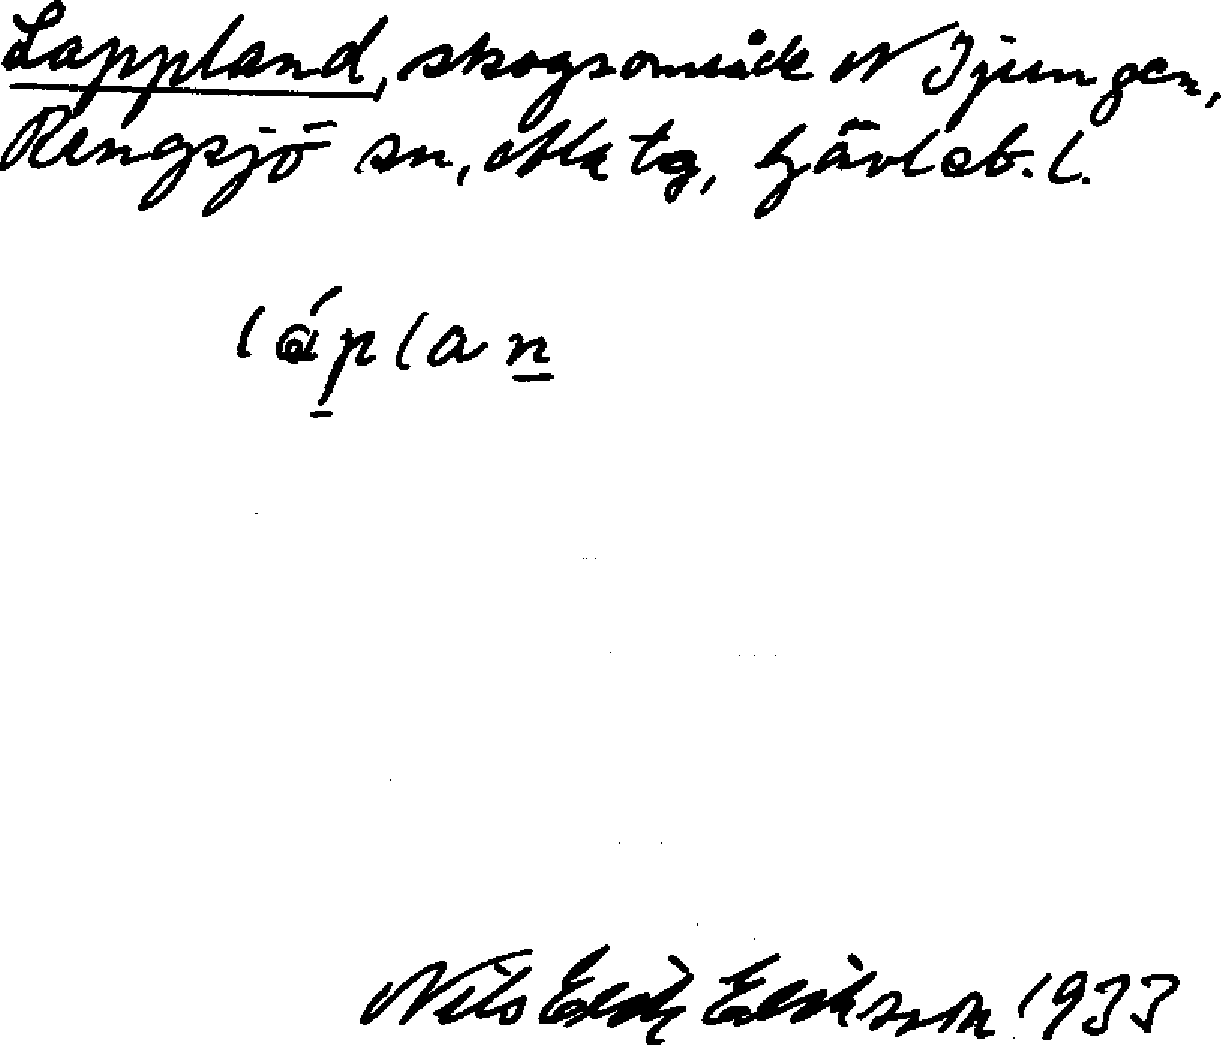 Lappland, skogsområde N Ijungen,
Rengsjö sn, Ala tg, Gävleb. l.
láplan
Nils Erik Eriksson 1933